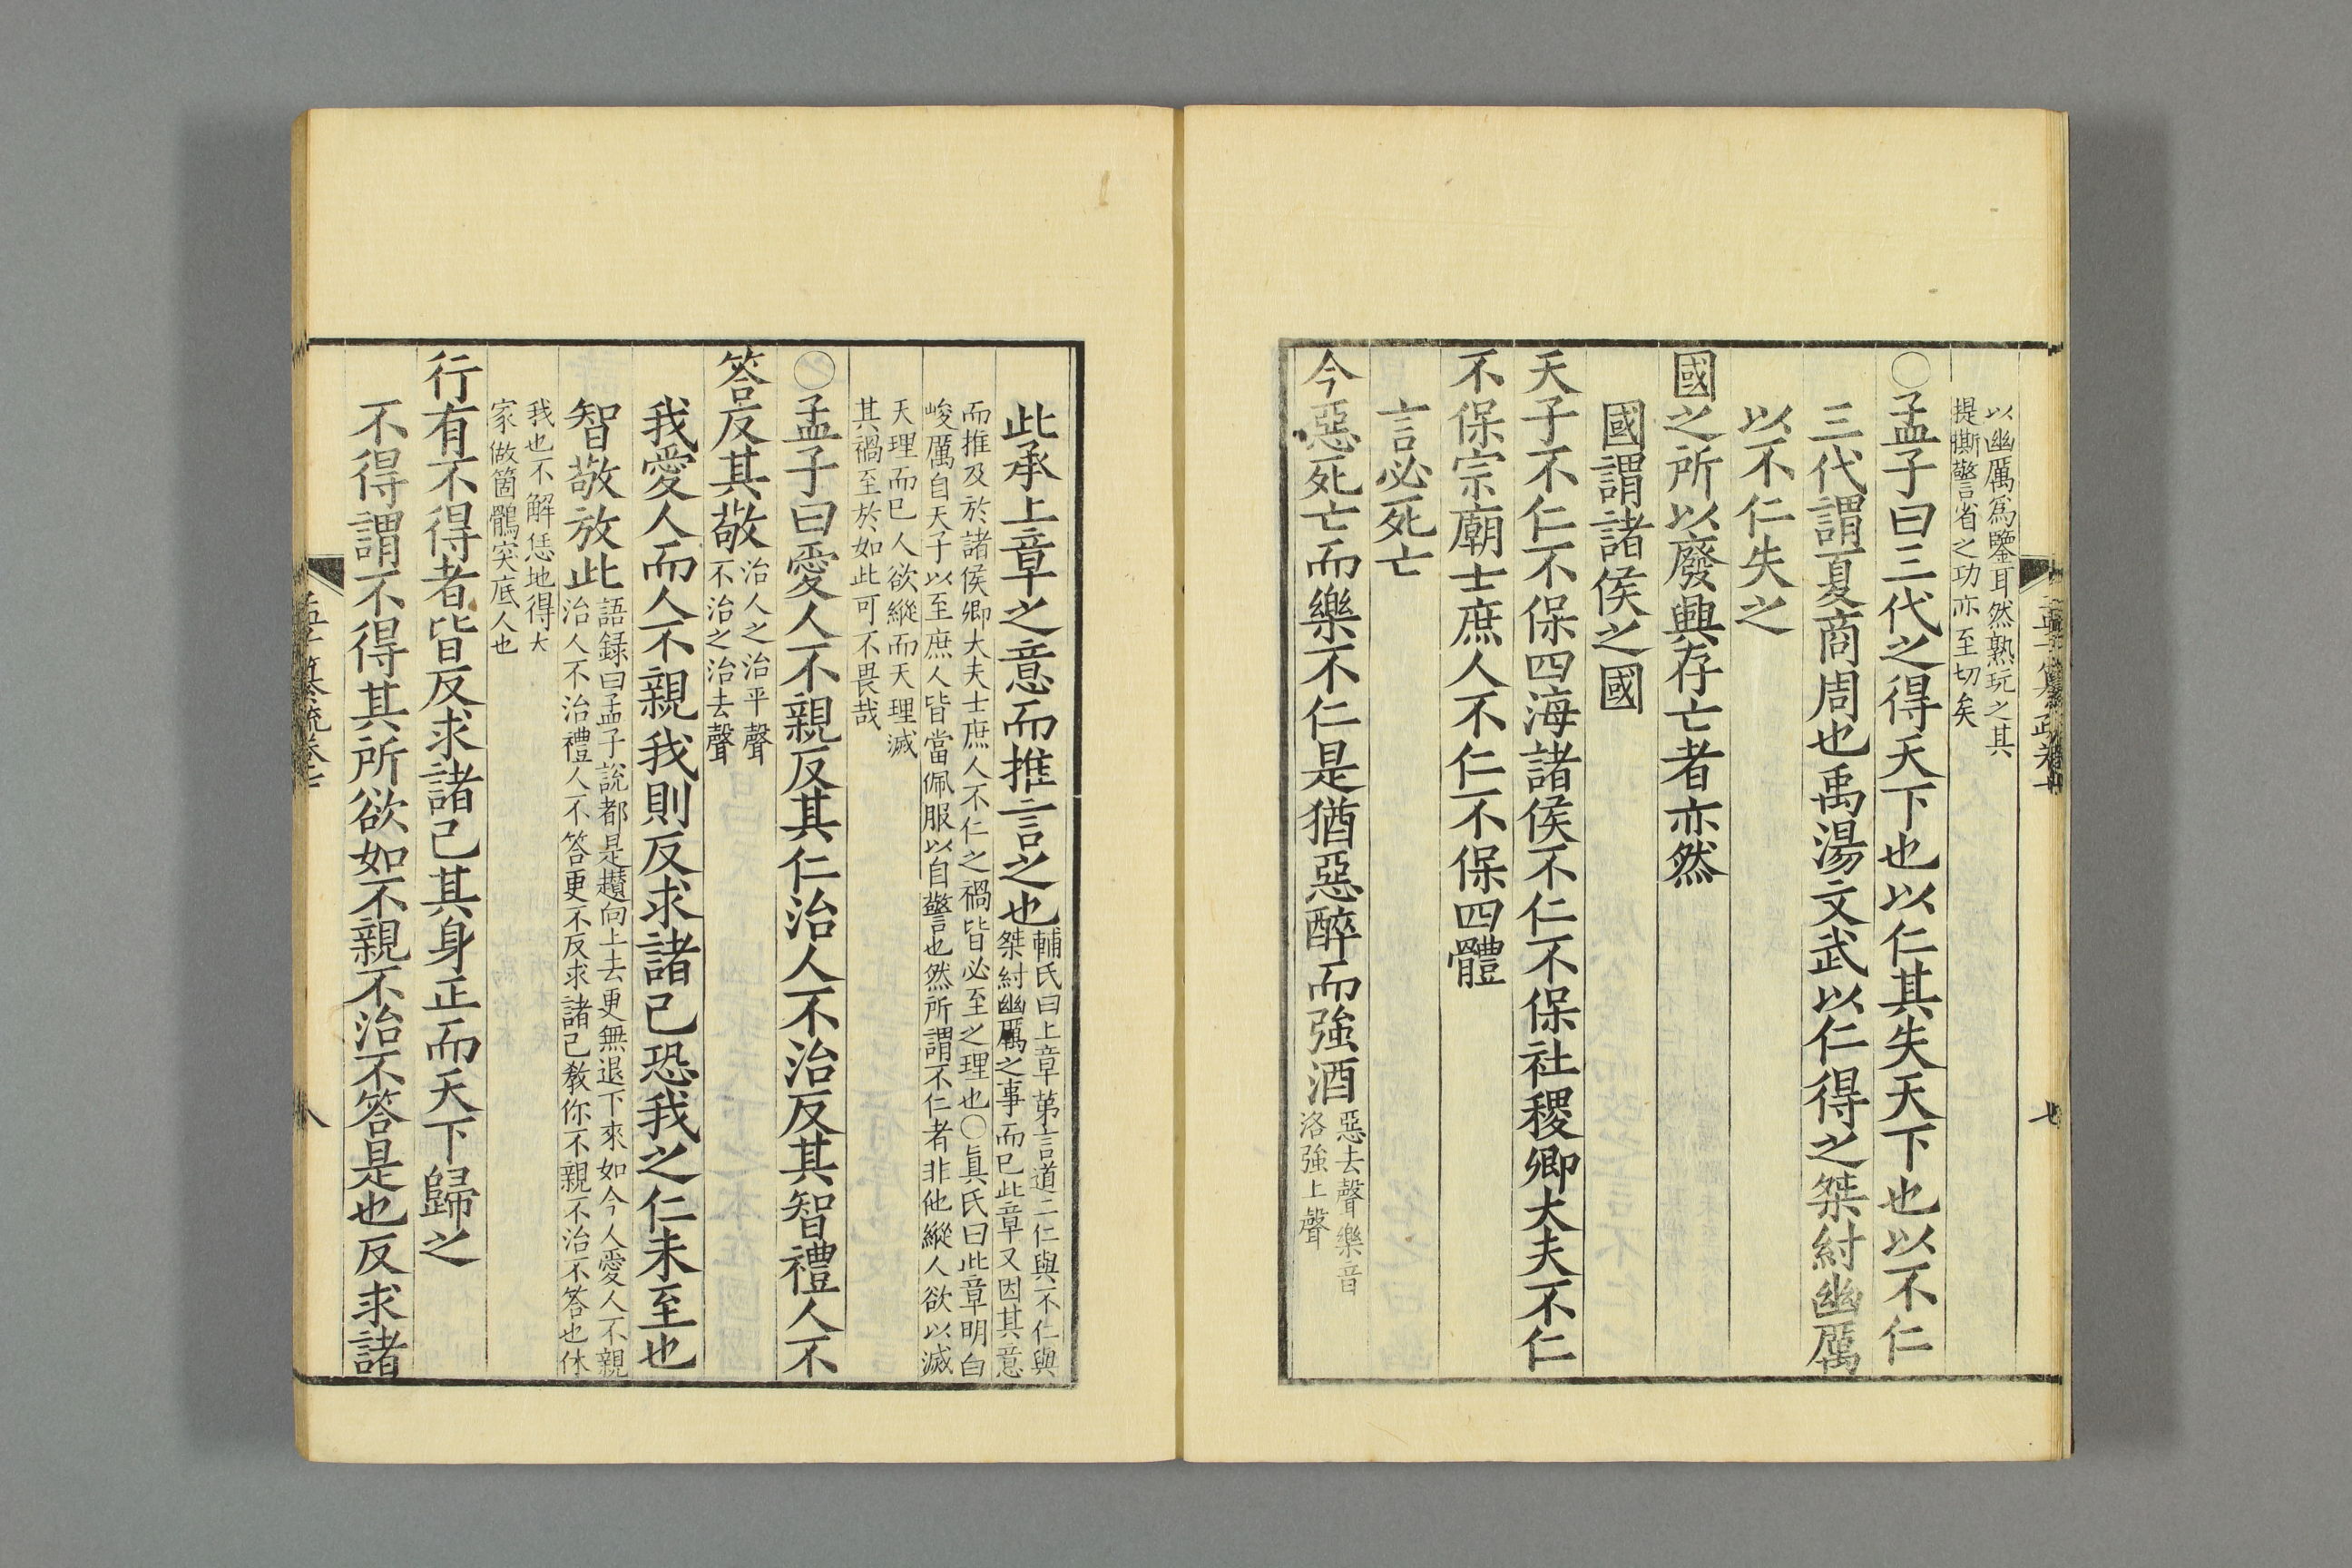 以幽厲爲鑒耳然熟玩之其
提撕警省之功亦至切矣
〇孟子曰三代之得天下也以仁其失天下也以不仁
三代謂夏商周也禹湯文武以仁得之桀紂幽厲
以不仁失之
國之所以廢興存亡者亦然
國謂諸侯之國
天子不仁不保四海諸侯不仁不保社稷卿大夫不仁
不保宗廟士庶人不仁不保四體
言必死亡
今惡死亡而樂不仁是猶惡醉而強酒
惡去聲樂音
洛強上聲
七
此承上章之意而推言之也
輔氏曰上章第言道二仁與不仁與
桀紂幽厲之事而已此章又因其意
而推及於諸侯卿大夫士庶人不仁之禍皆必至之理也〇眞氏曰此章明白
峻厲自天子以至庶人皆當佩服以自警也然所謂不仁者非他縱人欲以滅
天理而已人欲縱而天理滅
其禍至於如此可不畏哉
〇孟子曰愛人不親反其仁治人不治反其智禮人不
答反其敬
治人之治平聲
不治之治去聲
我愛人而人不親我則反求諸己恐我之仁未至也
智敬放此
語録曰孟子說都是趲向上去更無退下來如今人愛人不親
治人不治禮人不答更不反求諸己教你不親不治不答也休
我也不解恁地得大
家做箇鶻突底人也
行有不得者皆反求諸己其身正而天下歸之
不得謂不得其所欲如不親不治不答是也反求諸
孟子纂疏卷七
八